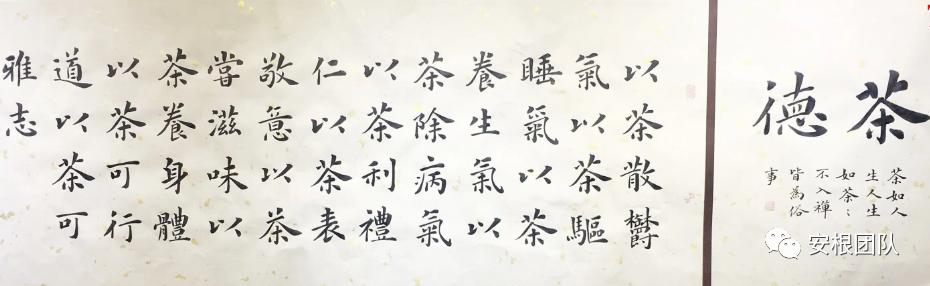 茶德
茶如人
生人生
如茶〻
不入禪
皆為俗
事
以茶散欝
氣以茶驅
睡氣以茶
養生氣以
茶除病氣
以茶利禮
仁以茶表
敬意以茶
嘗滋味以
茶養身體
以茶可行
道以茶可
雅志
安根团队